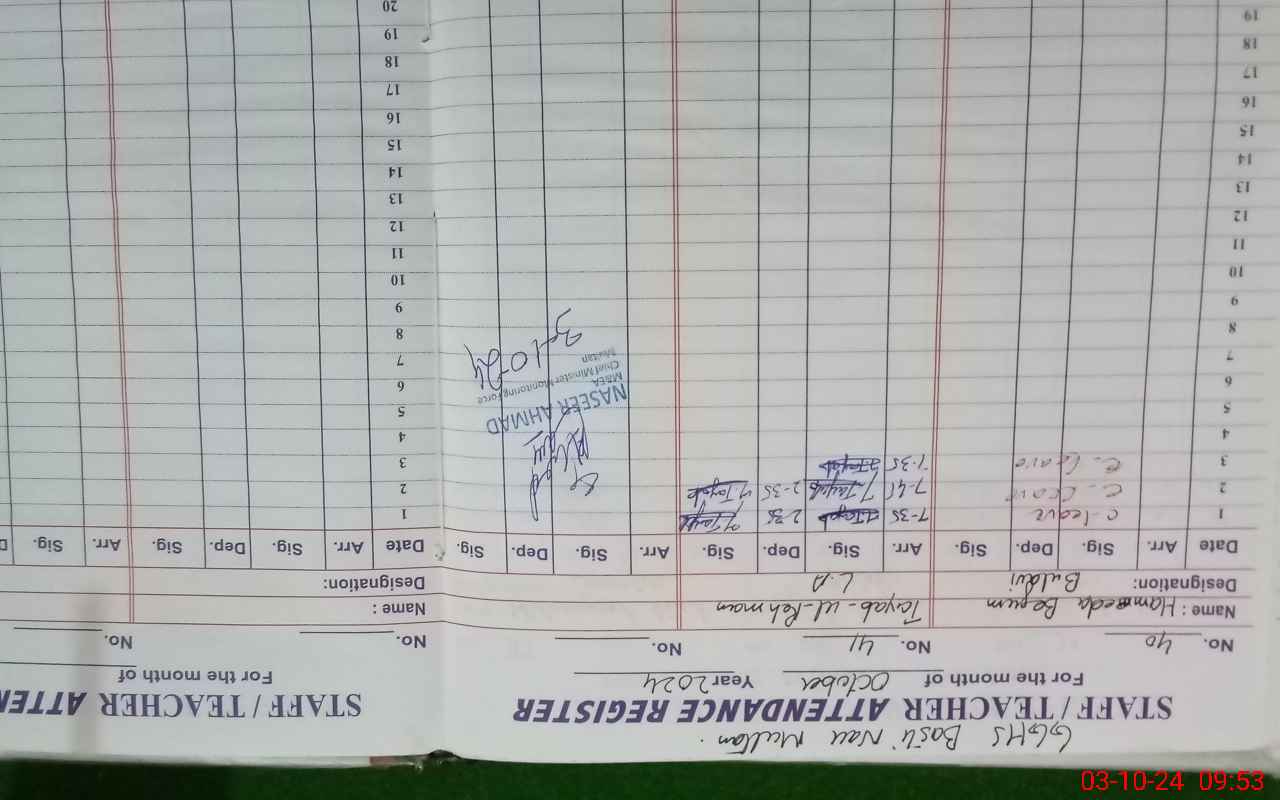 GGHS Basti Nau Multan.
STAFF / TEACHER ATTENDANCE REGISTER
For the month of October Year 2024
No. 40 No. 41 No.
Name: Hameeda Begum Tayab-ul-Rehman
Designation: Buldvi L.A
Date Arr. Sig. Dep. Sig. Arr. Sig. Dep. Sig. Arr. Sig. Dep. Sig.
1 C-leave 7-35 Tayab 2-35 Tayab
2 C-leave 7-45 Tayab 2-35 Tayab
3 C-leave 7-35 Tayab
4
5
6
7
8
9
10
11
12
13
14
15
16
17
18
19
NASEER AHMAD
MBEA
Chief Minister Monitoring Force
Multan
3-10-24
STAFF / TEACHER ATTEN
For the month of
No. No.
Name :
Designation:
Date Arr. Sig. Dep. Sig. Arr. Sig. D
1
2
3
4
5
6
7
8
9
10
11
12
13
14
15
16
17
18
19
20
03-10-24 09:53